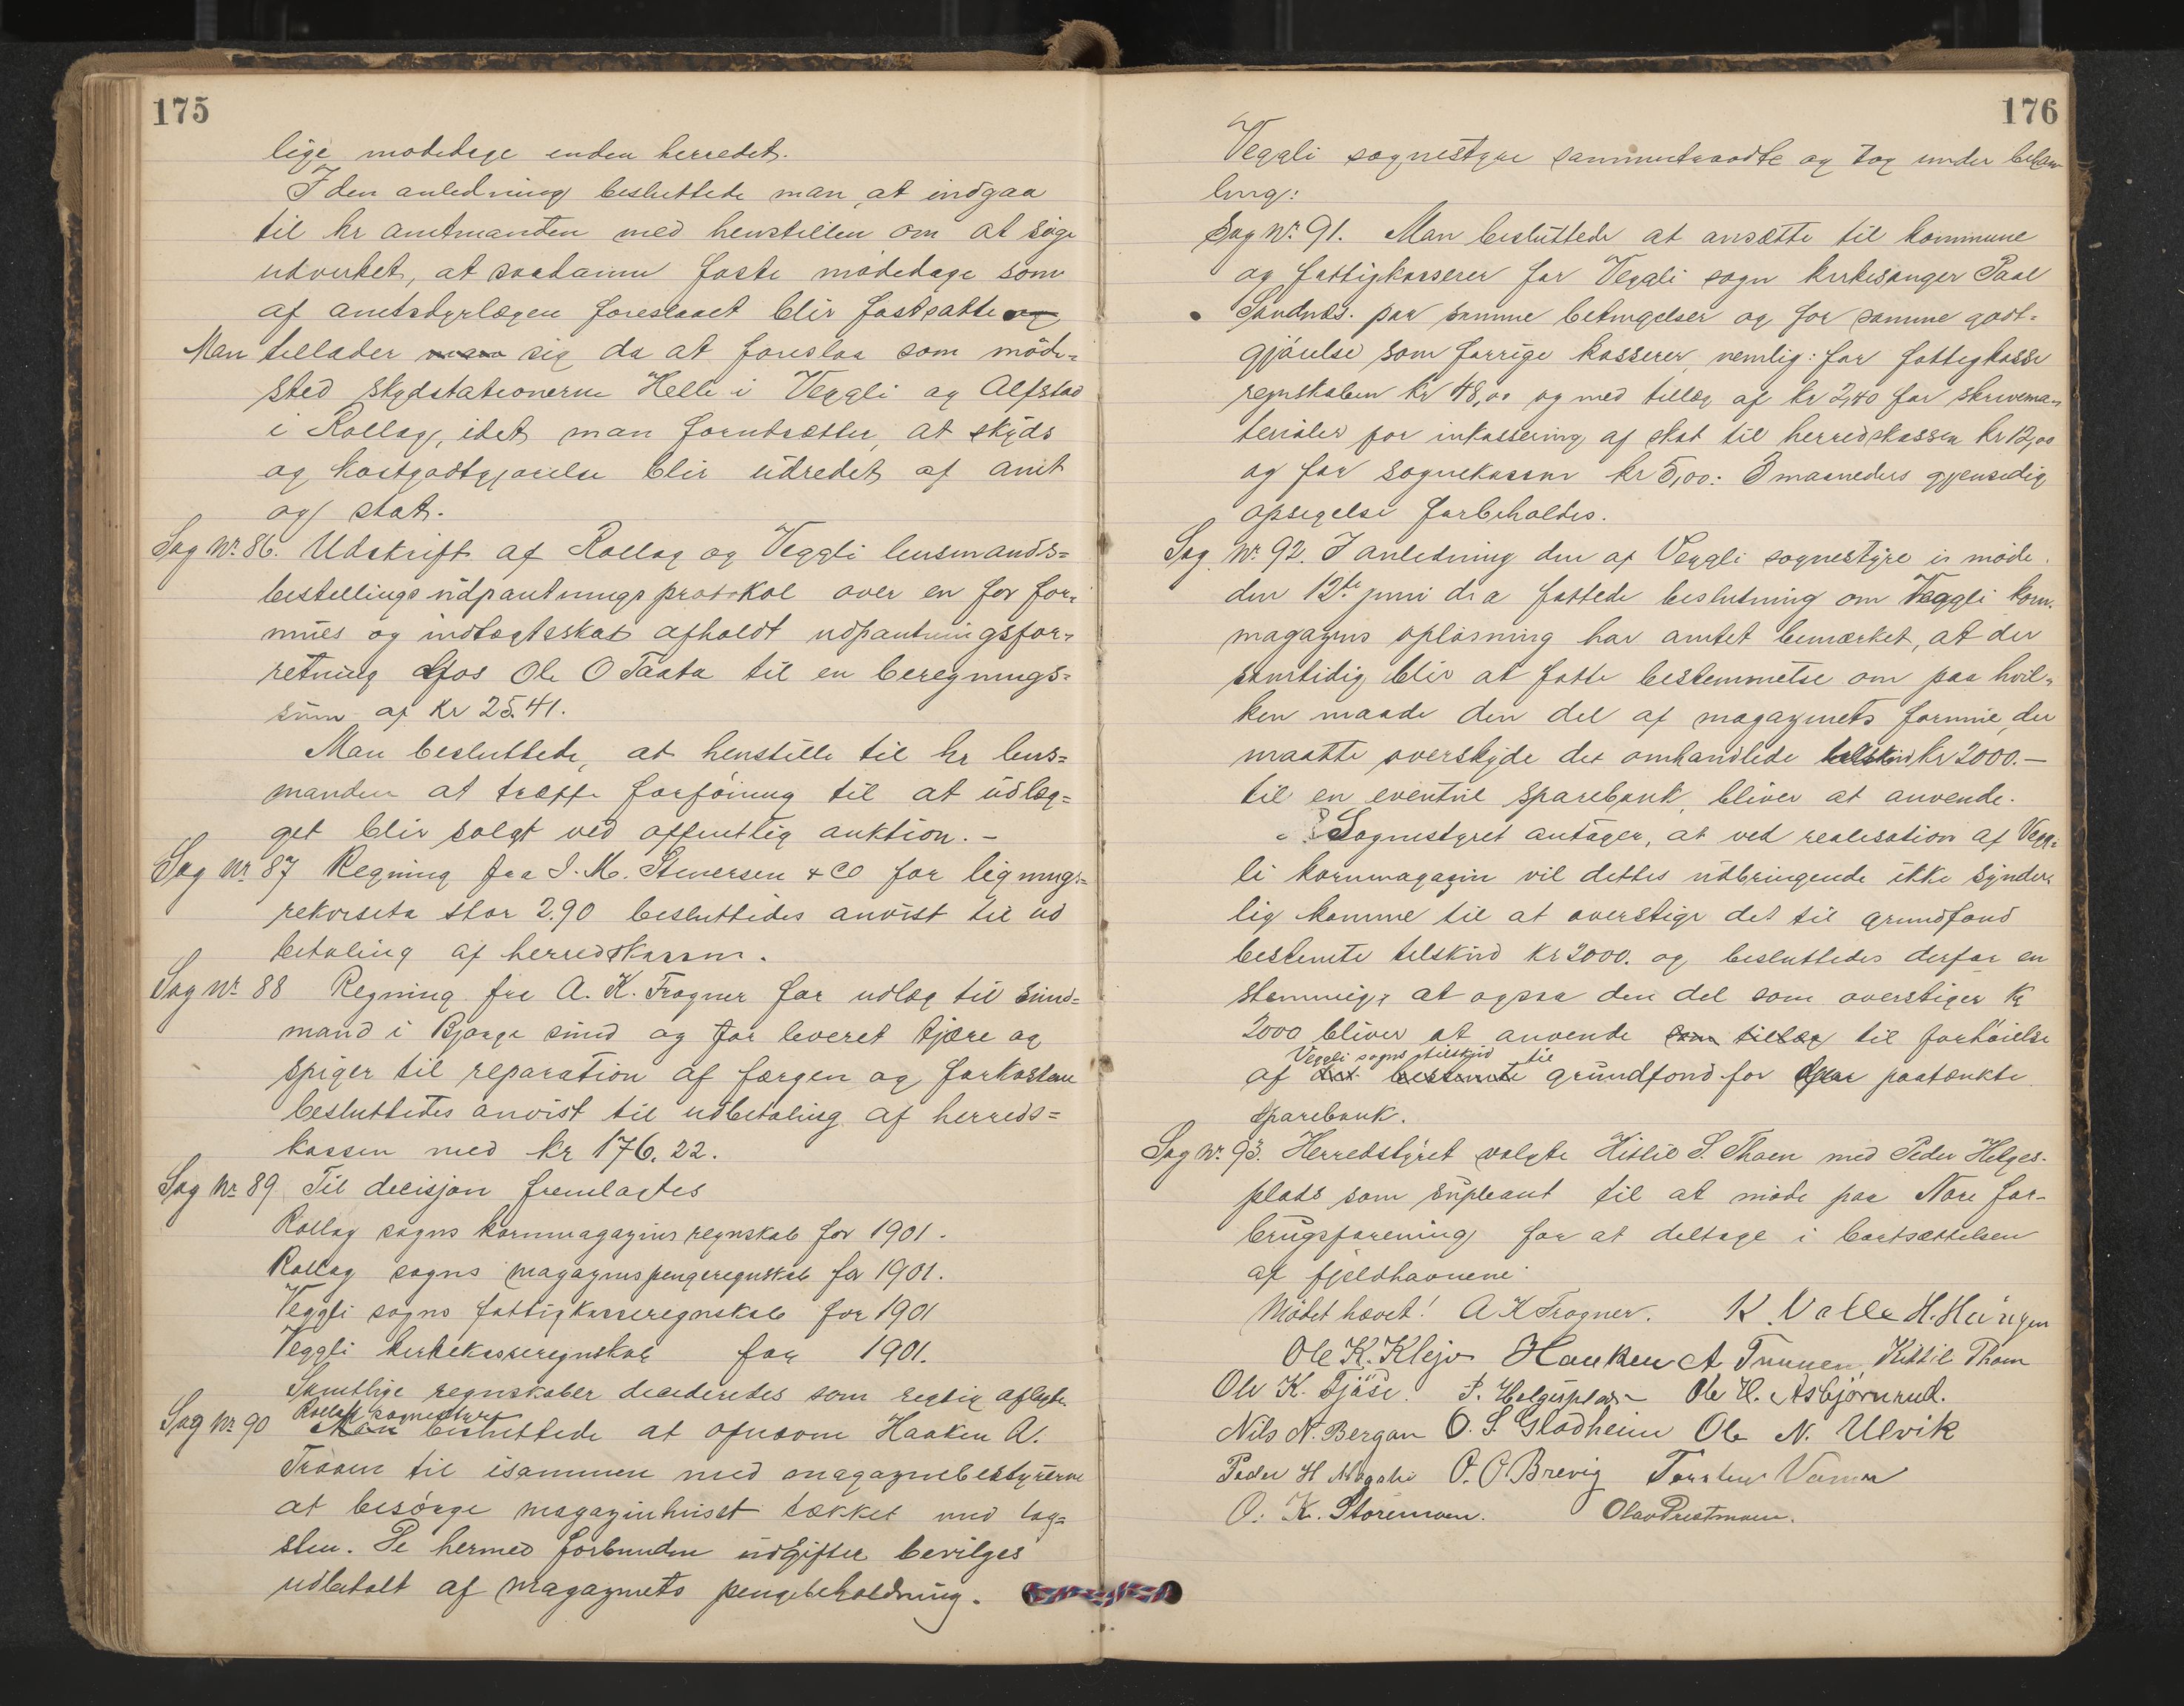 175
lige mødedage enden herredet.
I den anledning besluttede man at indgaa
til hr amtmanden med henstillen om at søge
udvirket, at saadanne faste mødedage som
af amtsdyrlægen foreslaaet blir fastsatte og
Man tillader man sig da at foreslaa som møde=
sted skydstationerne Helle i Veggli og Alfstad
i Rollag, idet man forudsætter, at skyds
og kostgodtgjørelse blir udredet af amt
og stat.
Sag Nr. 86. Udskrift af Rollag og Veggli lensmands=
bestillings udpantningsprotokol over en for for=
mues og indtægtsskat afholdt udpantningsfor=
retning hos Ole O Taata til en beregnings=
sum af Kr 25.41.
Man besluttede, at henstille til hr lens=
manden at træffe forføining til at udlæg=
get blir solgt ved offentlig auktion. -
Sag Nr 87 Regning fra I. M. Stenersen & Co for lignings=
rekvisita stor 2.90 besluttedes anvist til ud
betaling af herredskassen.
Sag Nr 88 Regning fra A. K. Trogner for udlæg til sund=
mand i Bjørge sund og for leveret tjære og
spiger til reparation af færgen og farkosten
besluttedes anvist til udbetaling af herreds=
kassen med kr 176.22.
Sag Nr 89 Til decisjon fremlagtes
Rollag sogns kornmagazins regnskab for 1901.
Rollag sogns magazins pengeregnskab for 1901.
Veggli sogns fattigkasseregnskab for 1901
Veggli kirkekasseregnskab for 1901.
Samtlige regnskaber decideredes som rigtig aflagte.
Rollag sognestyre
Sag Nr 90 Man besluttede at opnævne Haaken A.
Traaen til isammen med magazinbestyrerne
at besørge magazinhuset tækket med tag=
sten. De hermed forbundne udgifter bevilges
udbetalt af magazinets pengebeholdning.
176
Veggli sognestyre sammentraadte og tog under behan
ling:
Sag Nr. 91. Man besluttede at ansætte til kommune
og fattigkasserer for Veggli sogn kirkesanger Paal
Sandnæs. paa samme betingelser og for samme godt=
gjørelse som forrige kasserer, nemlig: for fattigkasse
regnskaben kr 48,00 og med tillæg af kr 2,40 for skrivema=
terialer for inkassering af skat til herredskassen kr 12,00
og for sognekassen kr 5,00. 3 maaneders gjensidig
opsigelse forbeholdes.
Sag Nr. 92. I anledning den af Veggli sognestyre is møde
den 12te juni d. a fattede beslutning om Veggli korn
magazins opløsning har amtet bemærket, at der
samtidig blir at fatte bestemmelse om paa hvil=
ken maade den del af magazinets formue, der
maatte overskyde det omhandlede tilskud kr 2000.—
til en eventuel sparebank, bliver at anvende.
Sognestyret antager, at ved realisation af Vegg=
li kornmagazin vil dettes udbringende ikke synder=
lig komme til at overstige det til grundfond
bestemte tilskud kr 2000. og besluttedes derfor en
stemmig, at ogsaa den del som overstiger kr
2000 bliver at anvende som tillæg til forhøielse
Veggli sogns tilskud til
af det bestemte grundfond for den paatænkte
sparebank.
Sag Nr. 93. Herredstyret valgte Kittil S. Thoen med Peder Helges-
plads som supleant til at møde paa Nore for-
brugsforening for at deltage i bortsættelsen
af fjeldhavnene
Mødet hævet! A K Trogner. K. Valle H. Hüngen
Ole K. Klejo Haaken A Traaen Kittil Thoen
Ole K. Tjøse. P. Helgesplads Ole H. Asbjørnrud.
Nils N. Bergan O. S. Gladheim Ole N. Ulvik
Peder H O. O Brevig
O. K. Storemoen. Olav Prestmoen.